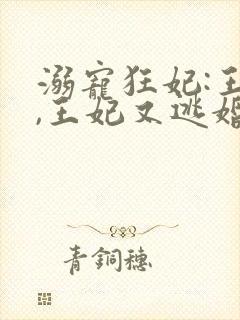 溺寵狂妃:王
,王妃又逃婚
青銅穗